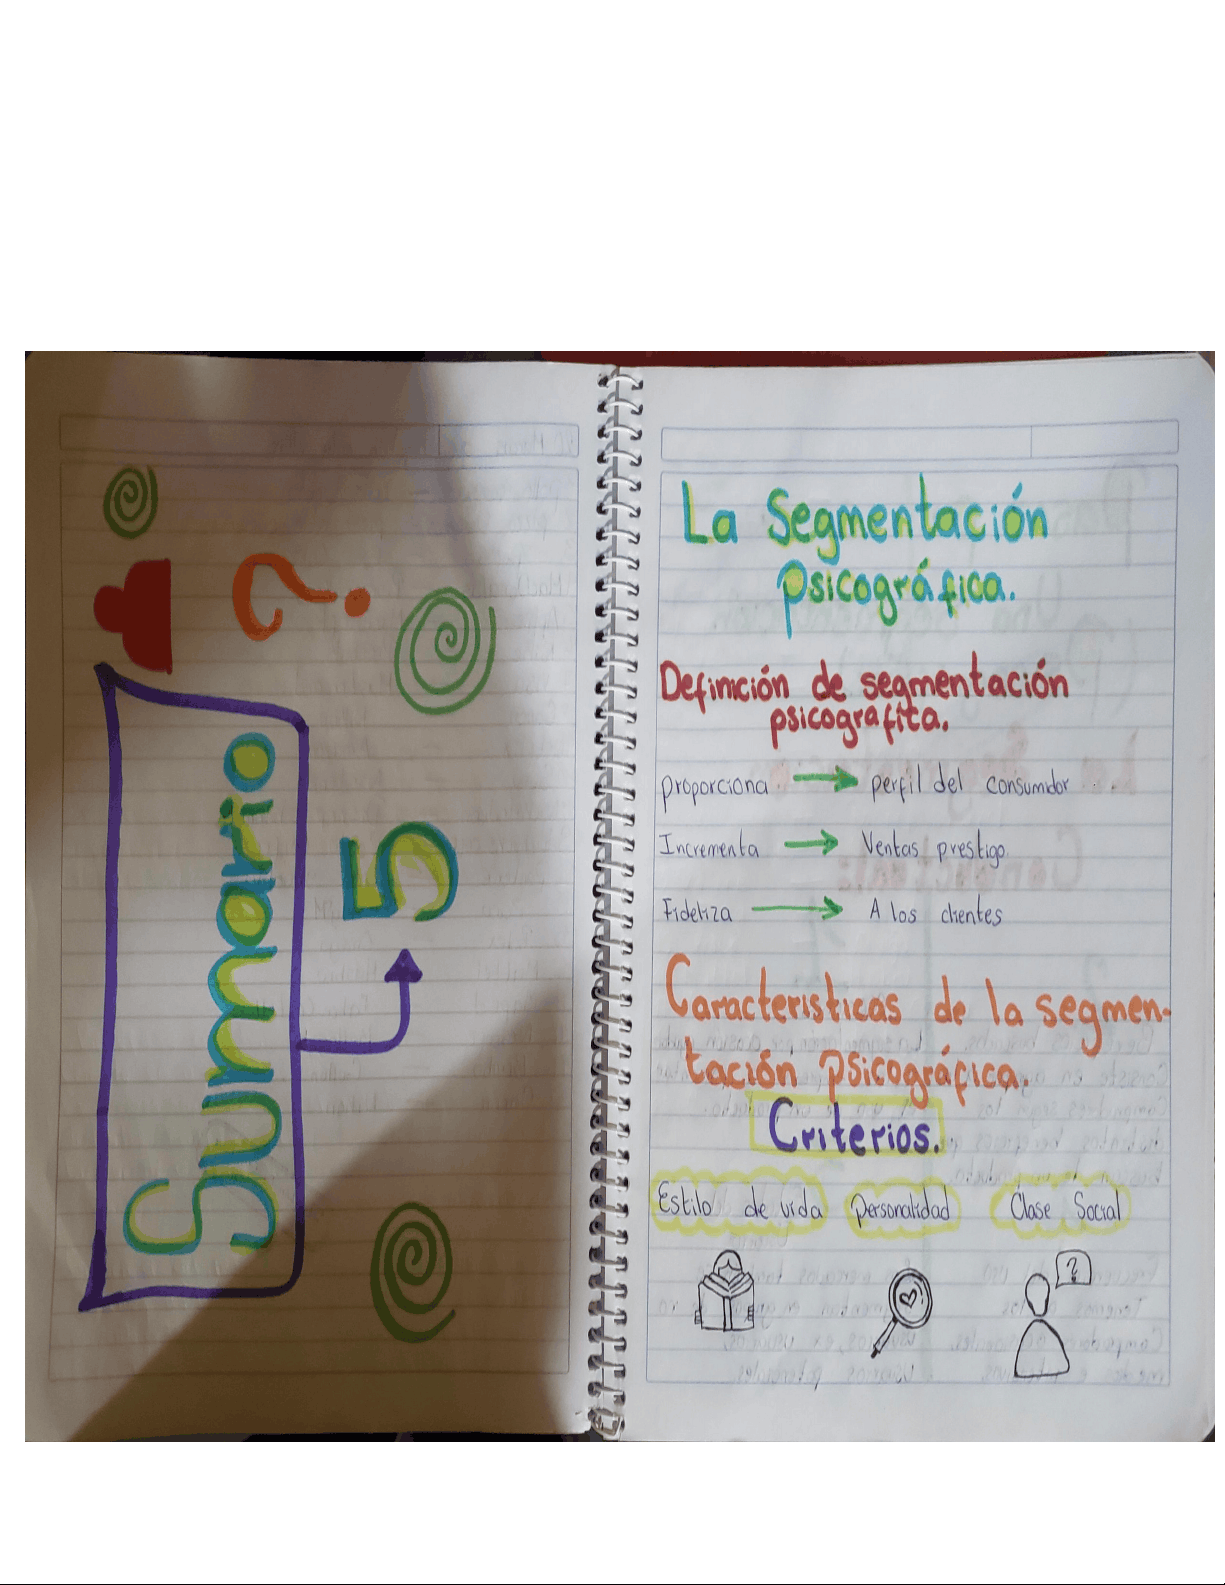 Sumario
5
?
La Segmentación
psicográfica.
Definición de segmentación
psicografita.
proporciona → perfil del consumidor
Incrementa → Ventas prestigo
Fideliza → A los clientes
Caracteristicas de la segmen-
tación psicográfica.
Criterios.
Estilo de vida personalidad Clase Social
?